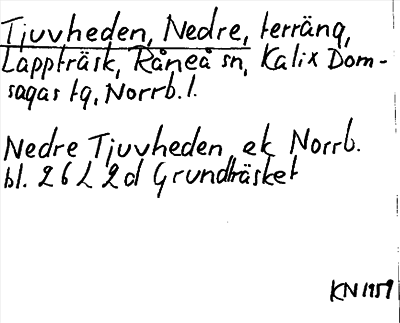 Tjuvheden, Nedre, terräng,
Lappträsk, Råneå sn, Kalix Dom-
sagas tg, Norrb. l.
Nedre Tjuvheden ek Norrb.
bl. 26 L 2d Grundträsket
KN 1959